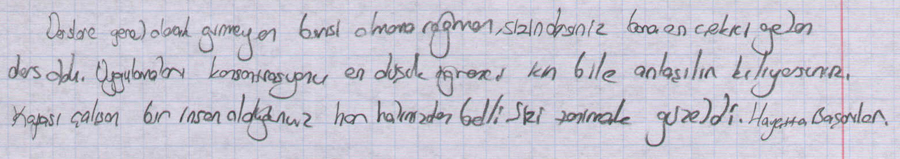 Derslere genel olarak girmeyen birisi olmama rağmen, sizin dersiniz bana en çekici gelen
ders oldu. Uygulamaları konsantrasyonu en düşük öğrenci için bile anlaşılır kılıyorsunuz.
Kafası çalışan bir insan olduğunuz her halinizden belli. Sizi tanımak güzeldi. Hayatta Başarılar.